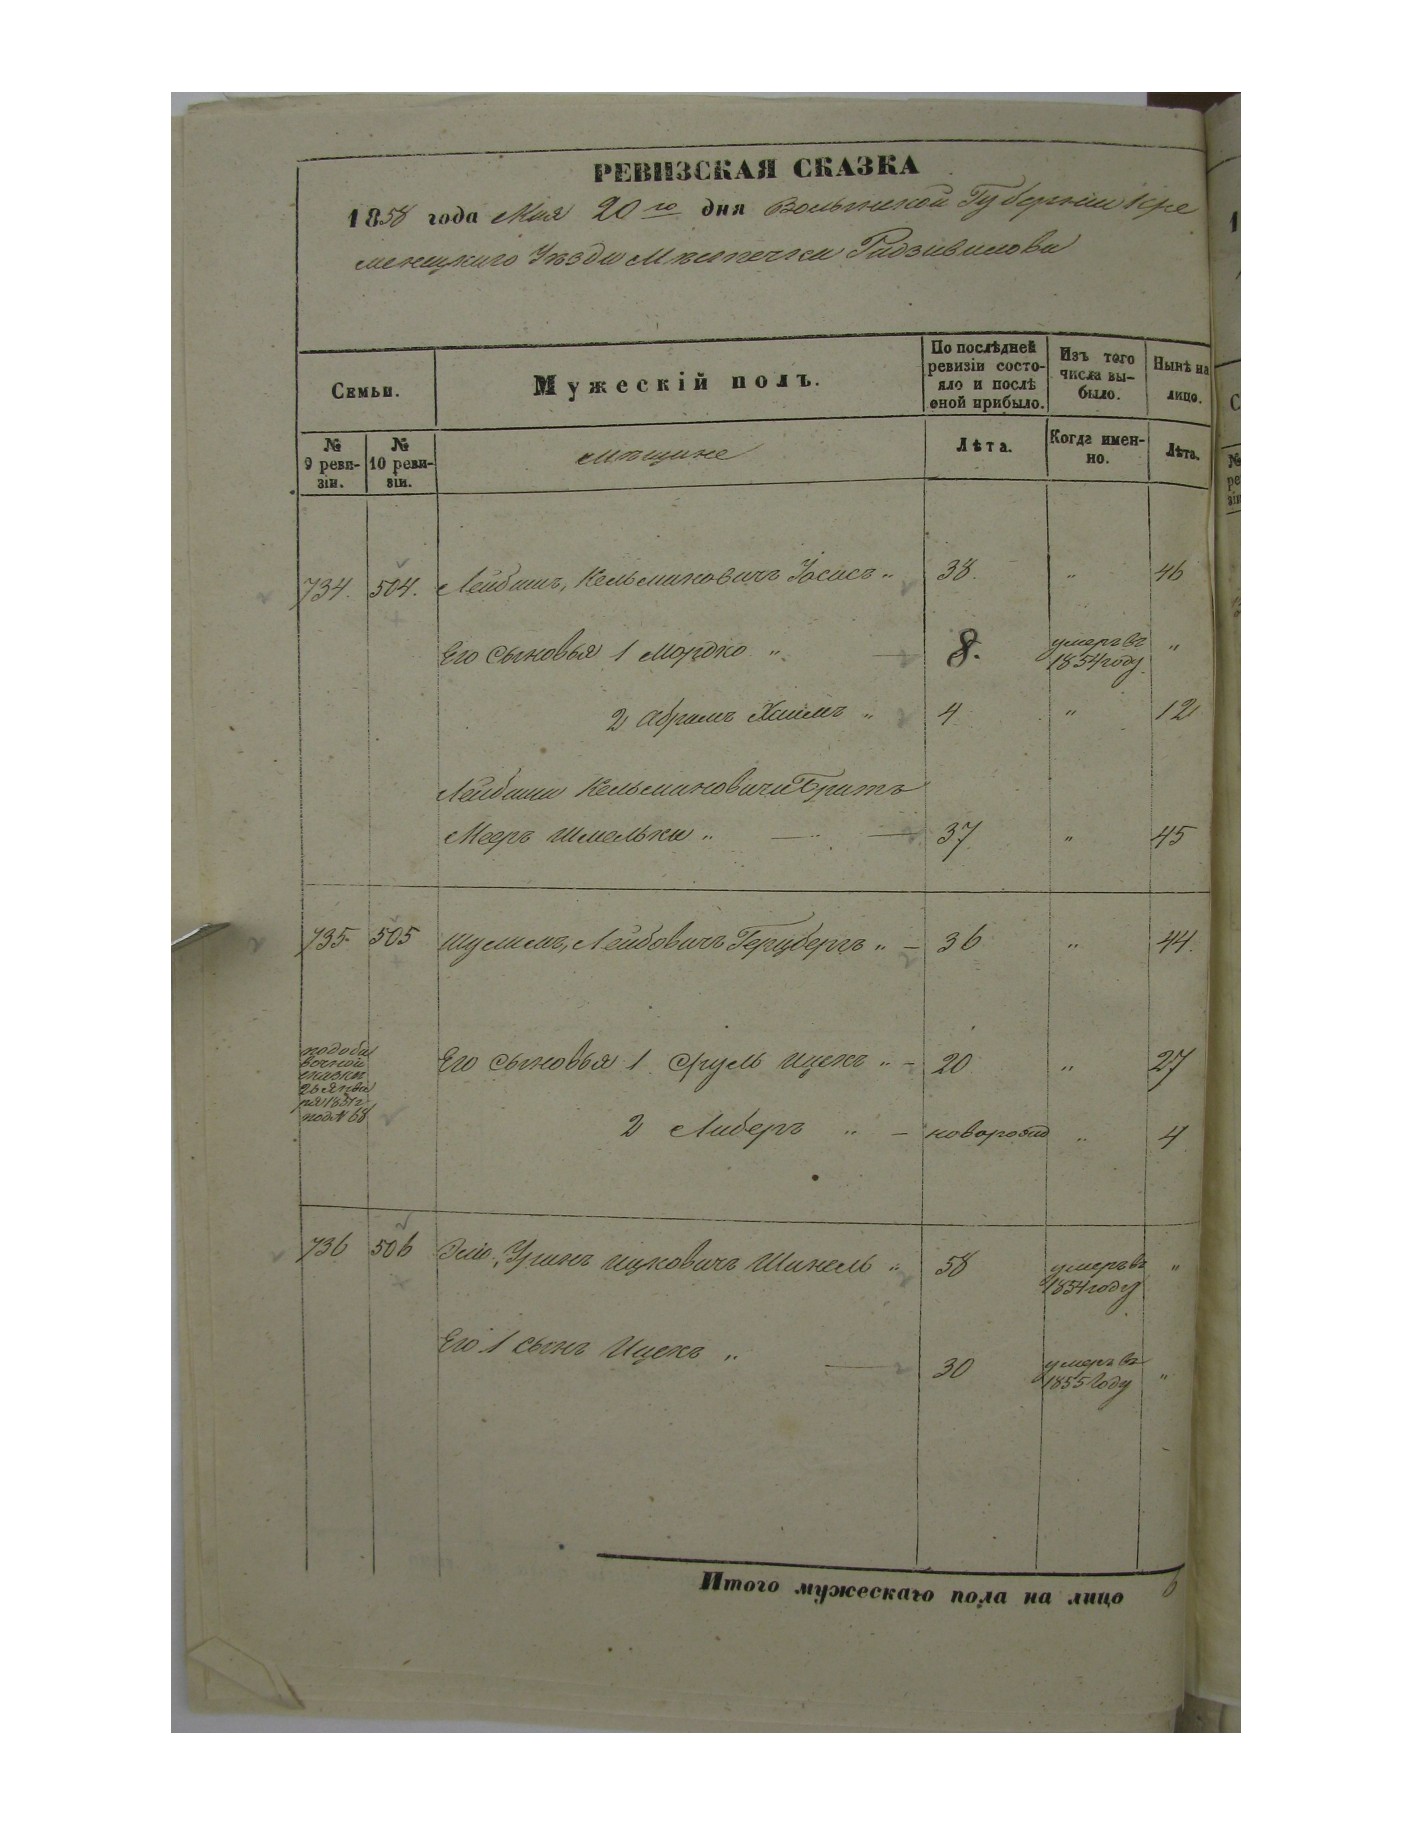 РЕВИЗСКАЯ СКАЗКА
1858 года Мая 20го дня Волынской Губернии Кре
менецкаго Уѣзда Мѣстечка Радзивилова
Семьи.
Мужескій полъ.
По послѣдней ревизіи состояло и послѣ оной прибыло.
Изъ того числа выбыло.
Нынѣ на лицо.
№ 9 ревизіи.
№ 10 ревизіи.
мѣщане
Лѣта.
Когда именно.
Лѣта.
734. 504. Лейбишъ, Кельмановичъ „ 38. „ 46
Его сыновья 1 Мордко „ 8. умеръ въ 1854 году „
2 Абрамъ Хаимъ „ 4 „ 12
Лейбиша Кельмановича Братъ
Мееръ Шмелька „ 37 „ 45
735. 505 Шулимъ, Лейбовичъ Герцбергъ „ 36 „ 44.
по доба
вочной
сказкѣ
26 Янва
ря 1851 г.
под № 68
Его сыновья 1 Сруль Ицекъ „ 20 „ 27
2 Либеръ „ новорожд „ 4
736 506 Ицковичъ Шинель „ 58 умеръ въ 1854 году „
Его 1 сынъ Ицекъ „ 30 умеръ въ 1855 году „
Итого мужескаго пола на лицо 6